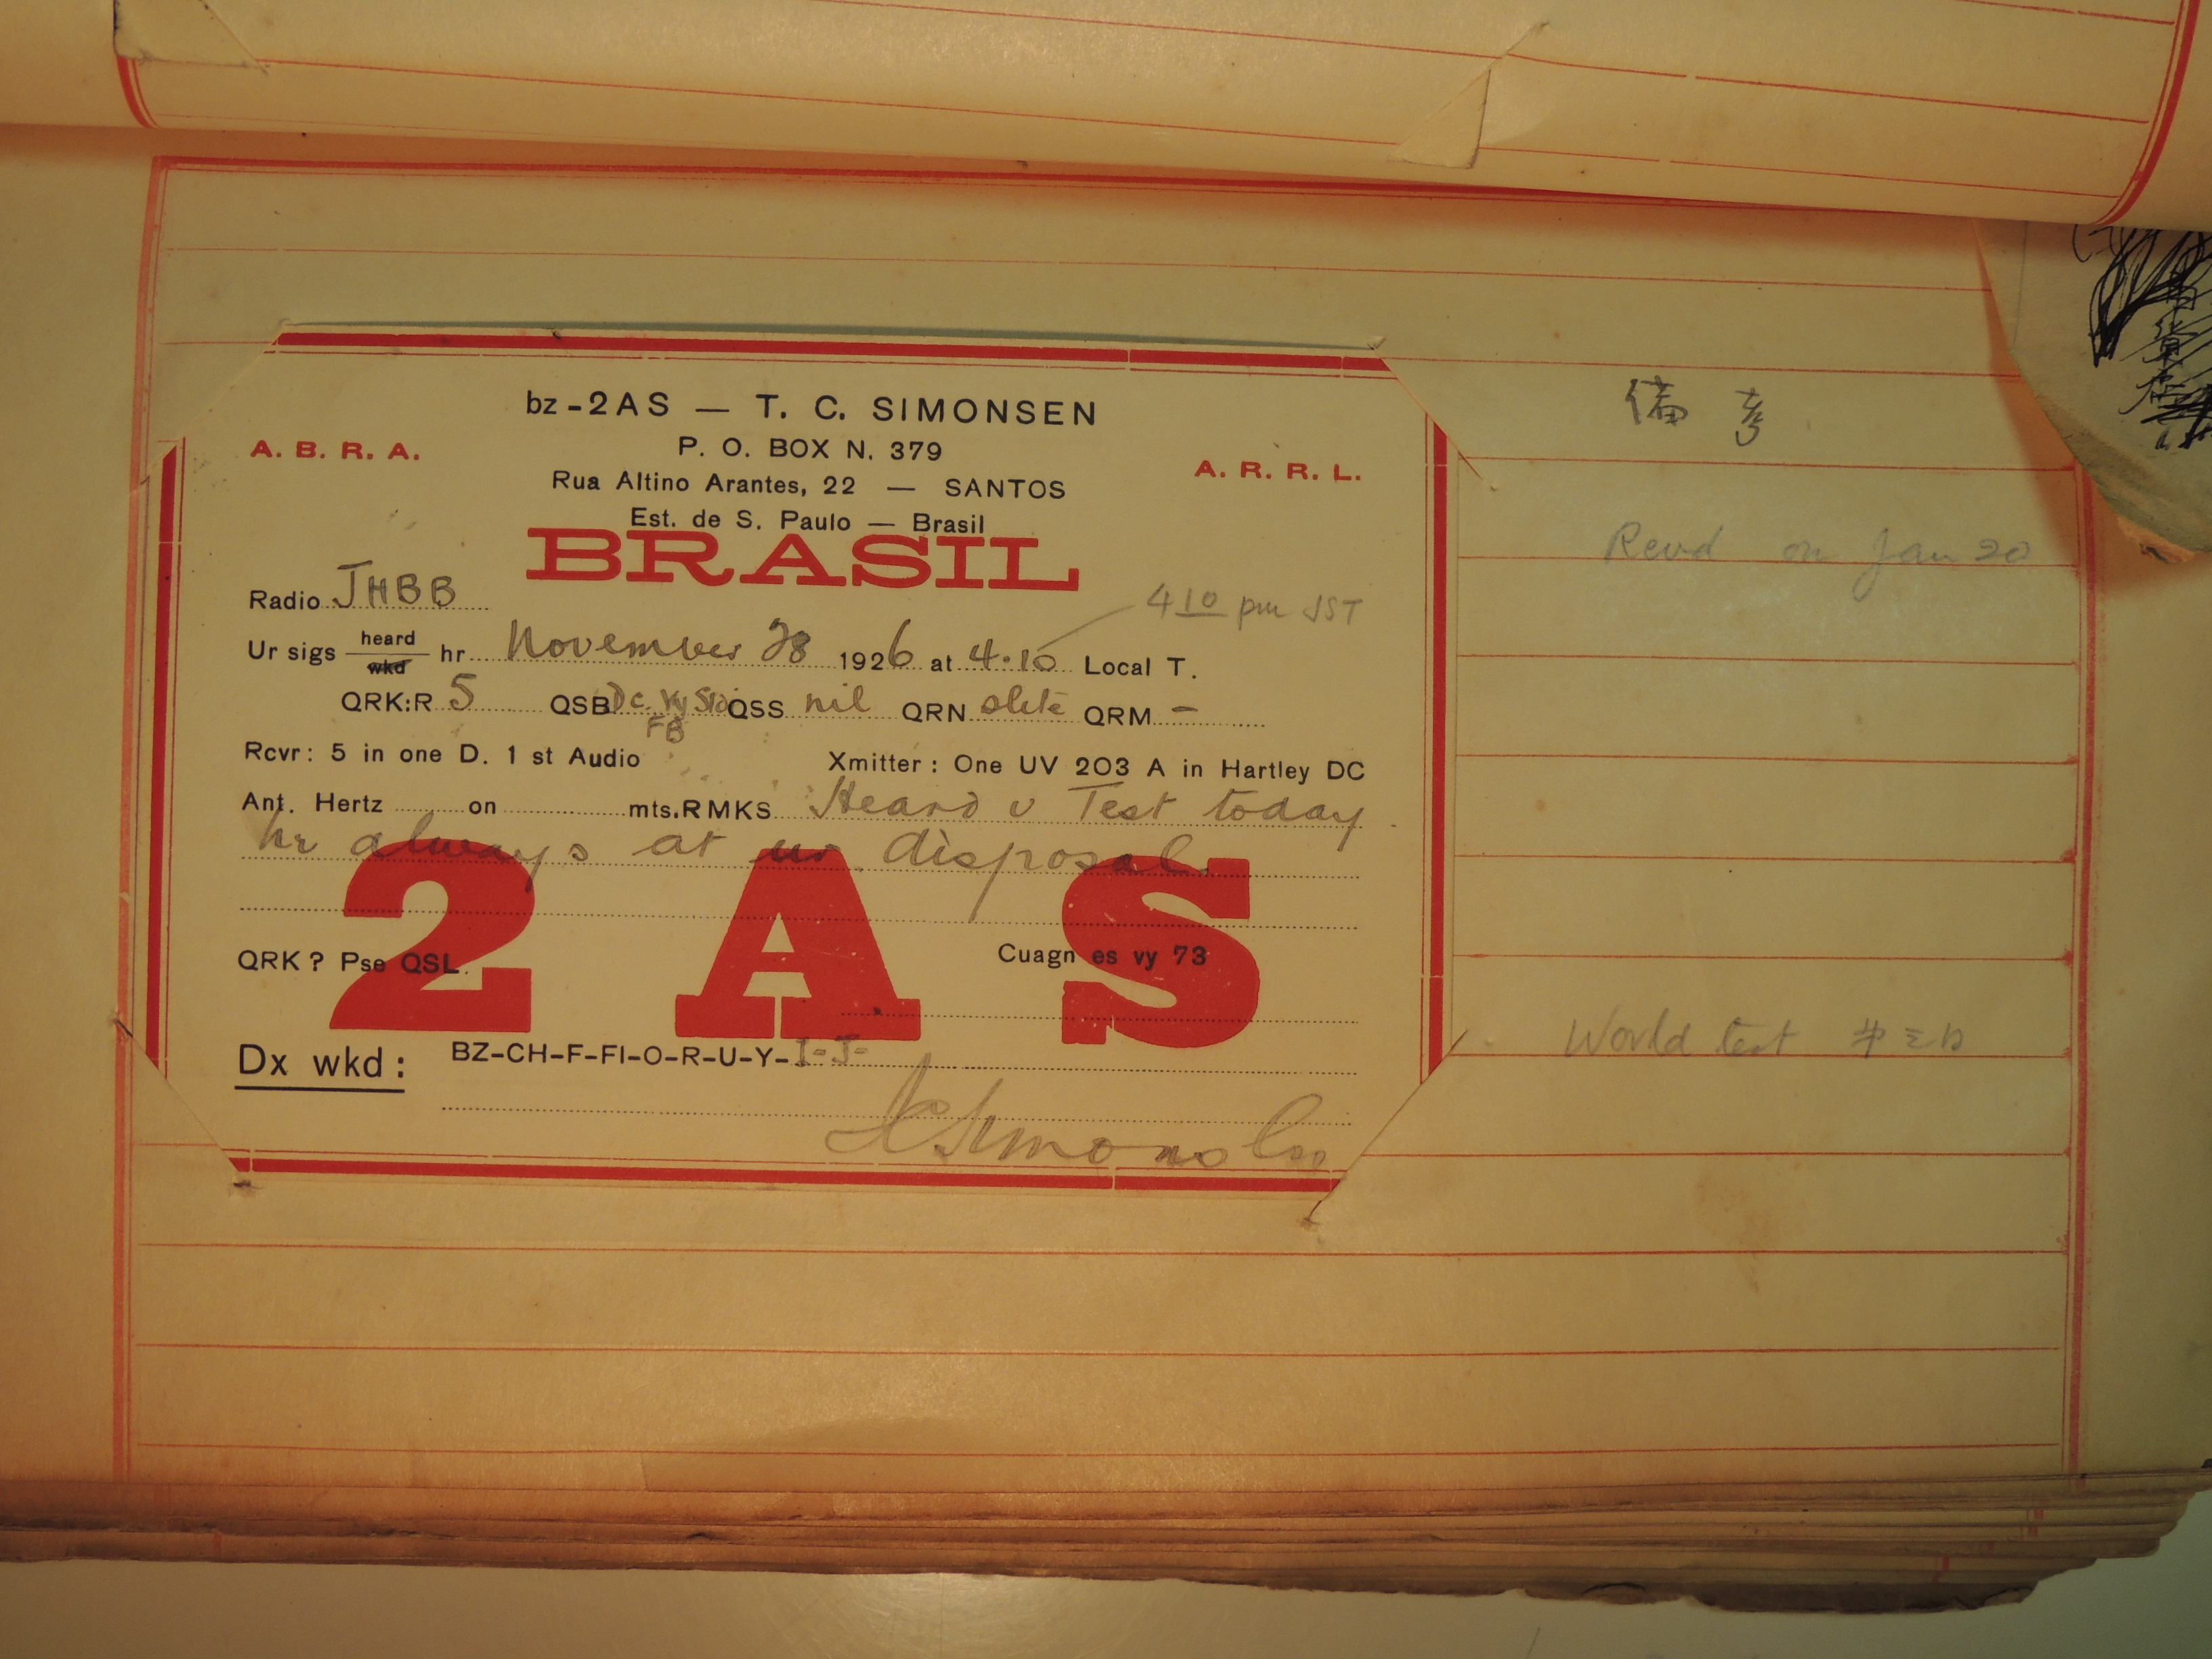 bz-2AS — T. C. SIMONSEN
A. B. R. A.
P. O. BOX N. 379
A. R. R. L.
Rua Altino Arantes, 22 — SANTOS
Est. de S. Paulo — Brasil
BRASIL
Radio JHBB
4 10 pm JST
Ur sigs heard wkd hr November 28 1926 at 4.10 Local T.
QRK:R 5 QSB Dc. Vy QSS nil QRN slite QRM -
FB
Rcvr: 5 in one D. 1 st Audio Xmitter: One UV 203 A in Hartley DC
Ant. Hertz on mts. RMKS Heard u Test today
hr always at ur disposal
2 A S
QRK? Pse QSL. Cuagn es vy 73
Dx wkd: BZ-CH-F-FI-O-R-U-Y-I-J-
備考
Recvd on Jan 20
World test